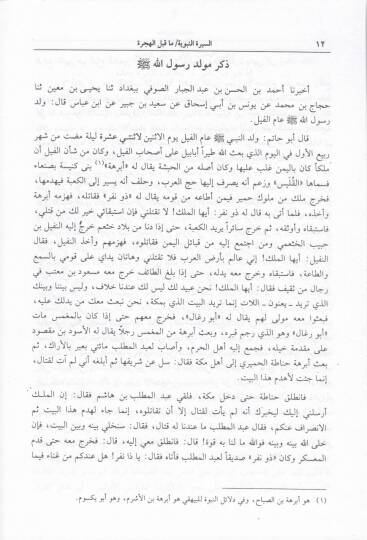 ١٢ السيرة النبوية/ ما قبل الهجرة
ذكر مولد رسول الله ﷺ
أخبرنا أحمد بن الحسن بن عبد الجبار الصوفي ببغداد ثنا يحيى بن معين ثنا
حجاج بن محمد عن يونس بن أبي إسحاق عن سعيد بن جبير عن ابن عباس قال: ولد
رسول الله ﷺ عام الفيل.
قال أبو حاتم: ولد النبي ﷺ عام الفيل يوم الاثنين لاثنتي عشرة ليلة مضت من شهر
ربيع الأول في اليوم الذي بعث الله طيراً أبابيل على أصحاب الفيل، وكان من شأن الفيل أن
ملكاً كان باليمن غلب عليها وكان أصله من الحبشة يقال له «أبرهة»(١) بنى كنيسة بصنعاء
فسماها «القُلَّيس» وزعم أنه يصرف إليها حج العرب، وحلف أنه يسير إلى الكعبة فيهدمها،
فخرج ملك من ملوك حمير فيمن أطاعه من قومه يقال له «ذو نفر» فقاتله، فهزمه أبرهة
وأخذه، فلما أتى به قال له ذو نفر: أيها الملك! لا تقتلني فإن استبقائي خير لك من قتلي،
فاستبقاه وأوثقه، ثم خرج سائراً يريد الكعبة، حتى إذا دنا من بلاد خثعم خرج إليه النفيل بن
حبيب الخثعمي ومن اجتمع إليه من قبائل اليمن فقاتلوه، فهزمهم وأخذ النفيل، فقال
النفيل: أيها الملك! إني عالم بأرض العرب فلا تقتلني وهاتان يداي على قومي بالسمع
والطاعة، فاستبقاه وخرج معه يدله، حتى إذا بلغ الطائف خرج معه مسعود بن معتب في
رجال من ثقيف فقال: أيها الملك! نحن عبيد لك ليس لك عندنا خلاف، وليس بيننا وبينك
الذي تريد ـ يعنون ـ اللات إنما تريد البيت الذي بمكة، نحن نبعث معك من يدلك عليه،
فبعثوا معه مولى لهم يقال له «أبو رغال»، فخرج معهم حتى إذا كان بالمغمس مات
«أبو رغال» وهو الذي رجم قبره، وبعث أبرهة من المغمس رجلاً يقال له الأسود بن مقصود
على مقدمة خيله، فجمع إليه أهل الحرم، وأصاب لعبد المطلب مائتي بعير بالأراك، ثم
بعث أبرهة حناطة الحميري إلى أهل مكة فقال: سل عن شريفها ثم أبلغه أني لم آت لقتال،
إنما جئت لأهدم هذا البيت.
فانطلق حناطة حتى دخل مكة، فلقي عبد المطلب بن هاشم فقال: إن الملك
أرسلني إليك ليخبرك أنه لم يأت لقتال إلا أن تقاتلوه، إنما جاء لهدم هذا البيت ثم
الانصراف عنكم، فقال عبد المطلب ما عندنا له قتال، فقال: سنخلي بينه وبين البيت، فإن
خلى الله بينه وبينه فوالله ما لنا به قوة! قال: فانطلق معي إليه، قال: فخرج معه حتى قدم
المعسكر وكان «ذو نفر» صديقاً لعبد المطلب فأتاه فقال: يا ذا نفر! هل عندكم من غناء فيما
(١) هو أبرهة بن الصباح، وفي دلائل النبوة للبيهقي هو أبرهة بن الأشرم، وهو أبو يكسوم.